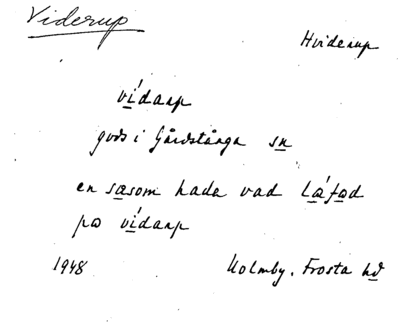 Viderup
Hviderup
vídarp
gods i Gårdstånga sn
en sæsom hada vad lǽfad
pa vídarp
1948 Holmby, Frosta hd